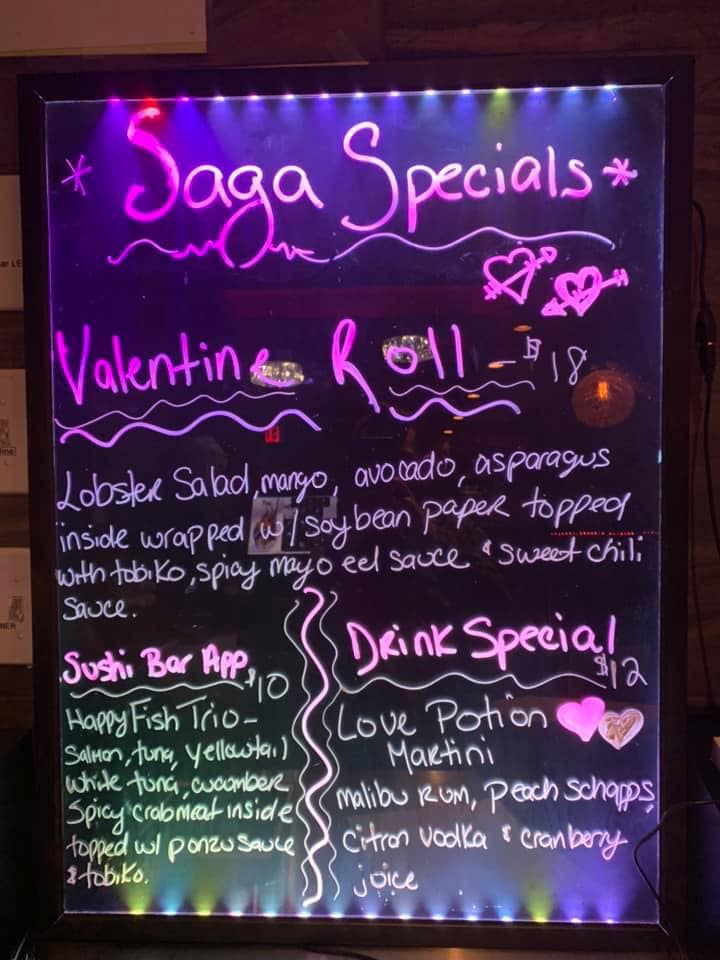 * Saga Specials *
Valentine Roll - $18
Lobster Salad, mango, avocado, asparagus
inside wrapped w/ soybean paper topped
with tobiko, spicy mayo eel sauce & sweet chili
sauce.
Sushi Bar App
$10
Happy Fish Trio-
Salmon, tuna, yellowtail
white tuna, cucumber
Spicy crabmeat inside
topped w/ ponzu sauce
& tobiko.
Drink Special
$12
Love Potion
Martini
malibu Rum, Peach Schapps,
Citron vodka & cranberry
juice